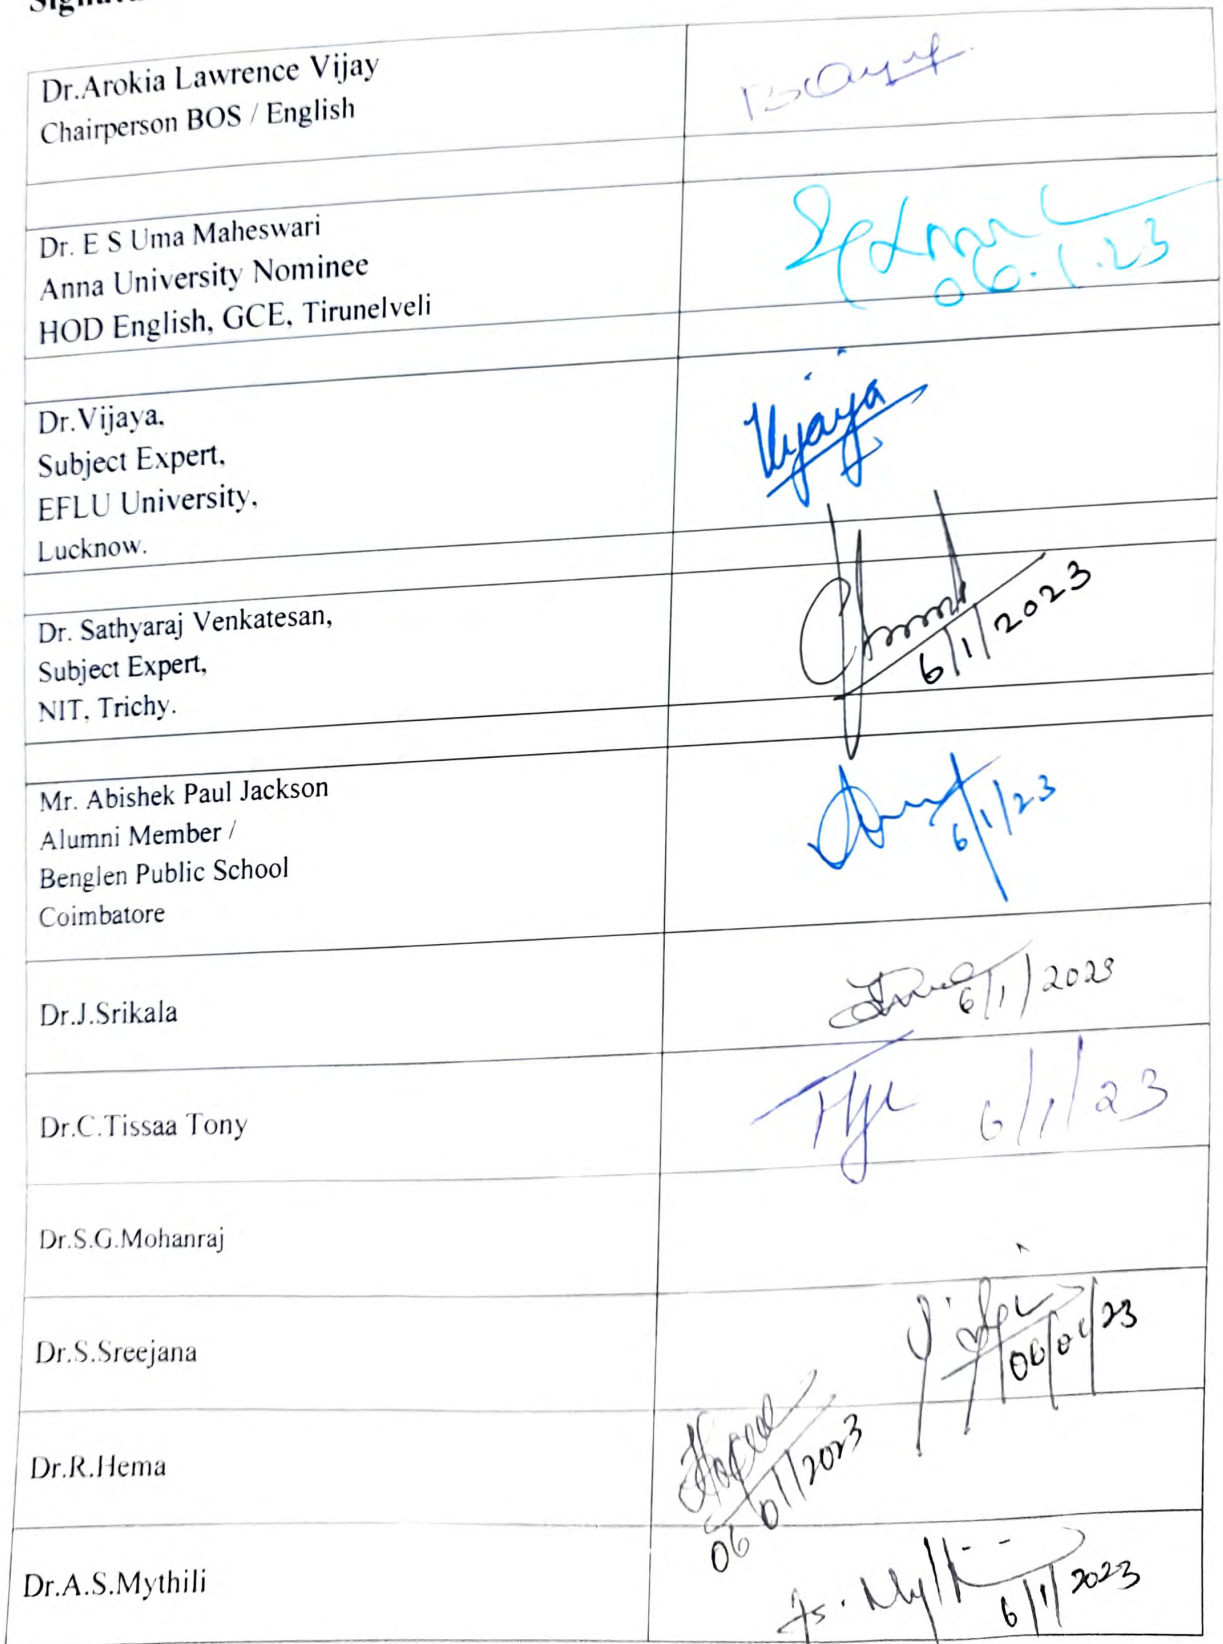 Dr.Arokia Lawrence Vijay
Chairperson BOS / English
Dr. E S Uma Maheswari
Anna University Nominee
HOD English, GCE, Tirunelveli
06.1.23
Dr.Vijaya.
Subject Expert,
EFLU University,
Lucknow.
Vijaya
Dr. Sathyaraj Venkatesan,
Subject Expert,
NIT, Trichy.
6/1/2023
Mr. Abishek Paul Jackson
Alumni Member /
Benglen Public School
Coimbatore
6/1/23
Dr.J.Srikala
6/1/2023
Dr.C.Tissaa Tony
6/1/23
Dr.S.G.Mohanraj
Dr.S.Sreejana
06/01/23
Dr.R.Hema
06/01/2023
Dr.A.S.Mythili
6/1/2023